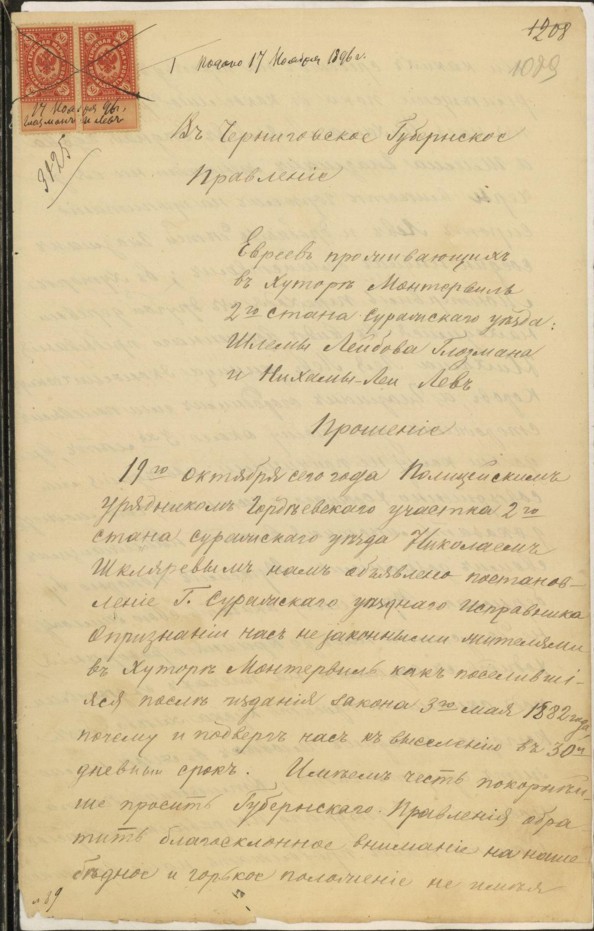 1208
1089
Подано 17 Ноября 1896 г.
17 Ноября 96 г.
3125
Въ Черниговское Губернское
Правленіе
Евреевъ проживающихъ
въ Хуторѣ Монтервиль
2го стана Суражскаго уѣзда:
Шлемы Лейбова Глозмана
и Нихамы-Леи Левъ
Прошеніе
19го октября сего года Полицейскимъ
урядникомъ Гордѣевскаго участка 2го
стана Суражскаго уѣзда Николаемъ
Шкляревымъ намъ объявлено постанов-
леніе Г. Суражскаго уѣзднаго Исправника
О признаніи насъ незаконными жителями
въ Хуторѣ Монтервиль какъ поселившi-
яся послѣ изданія закона 3го мая 1882 года,
почему и подвергъ насъ къ выселенію въ 30ти
дневный срокъ. Имѣемъ честь покорнѣй-
ше просить Губернскаго Правленія обра
тить благосклонное вниманіе на наше
бѣдное и горькое положеніе не имѣя